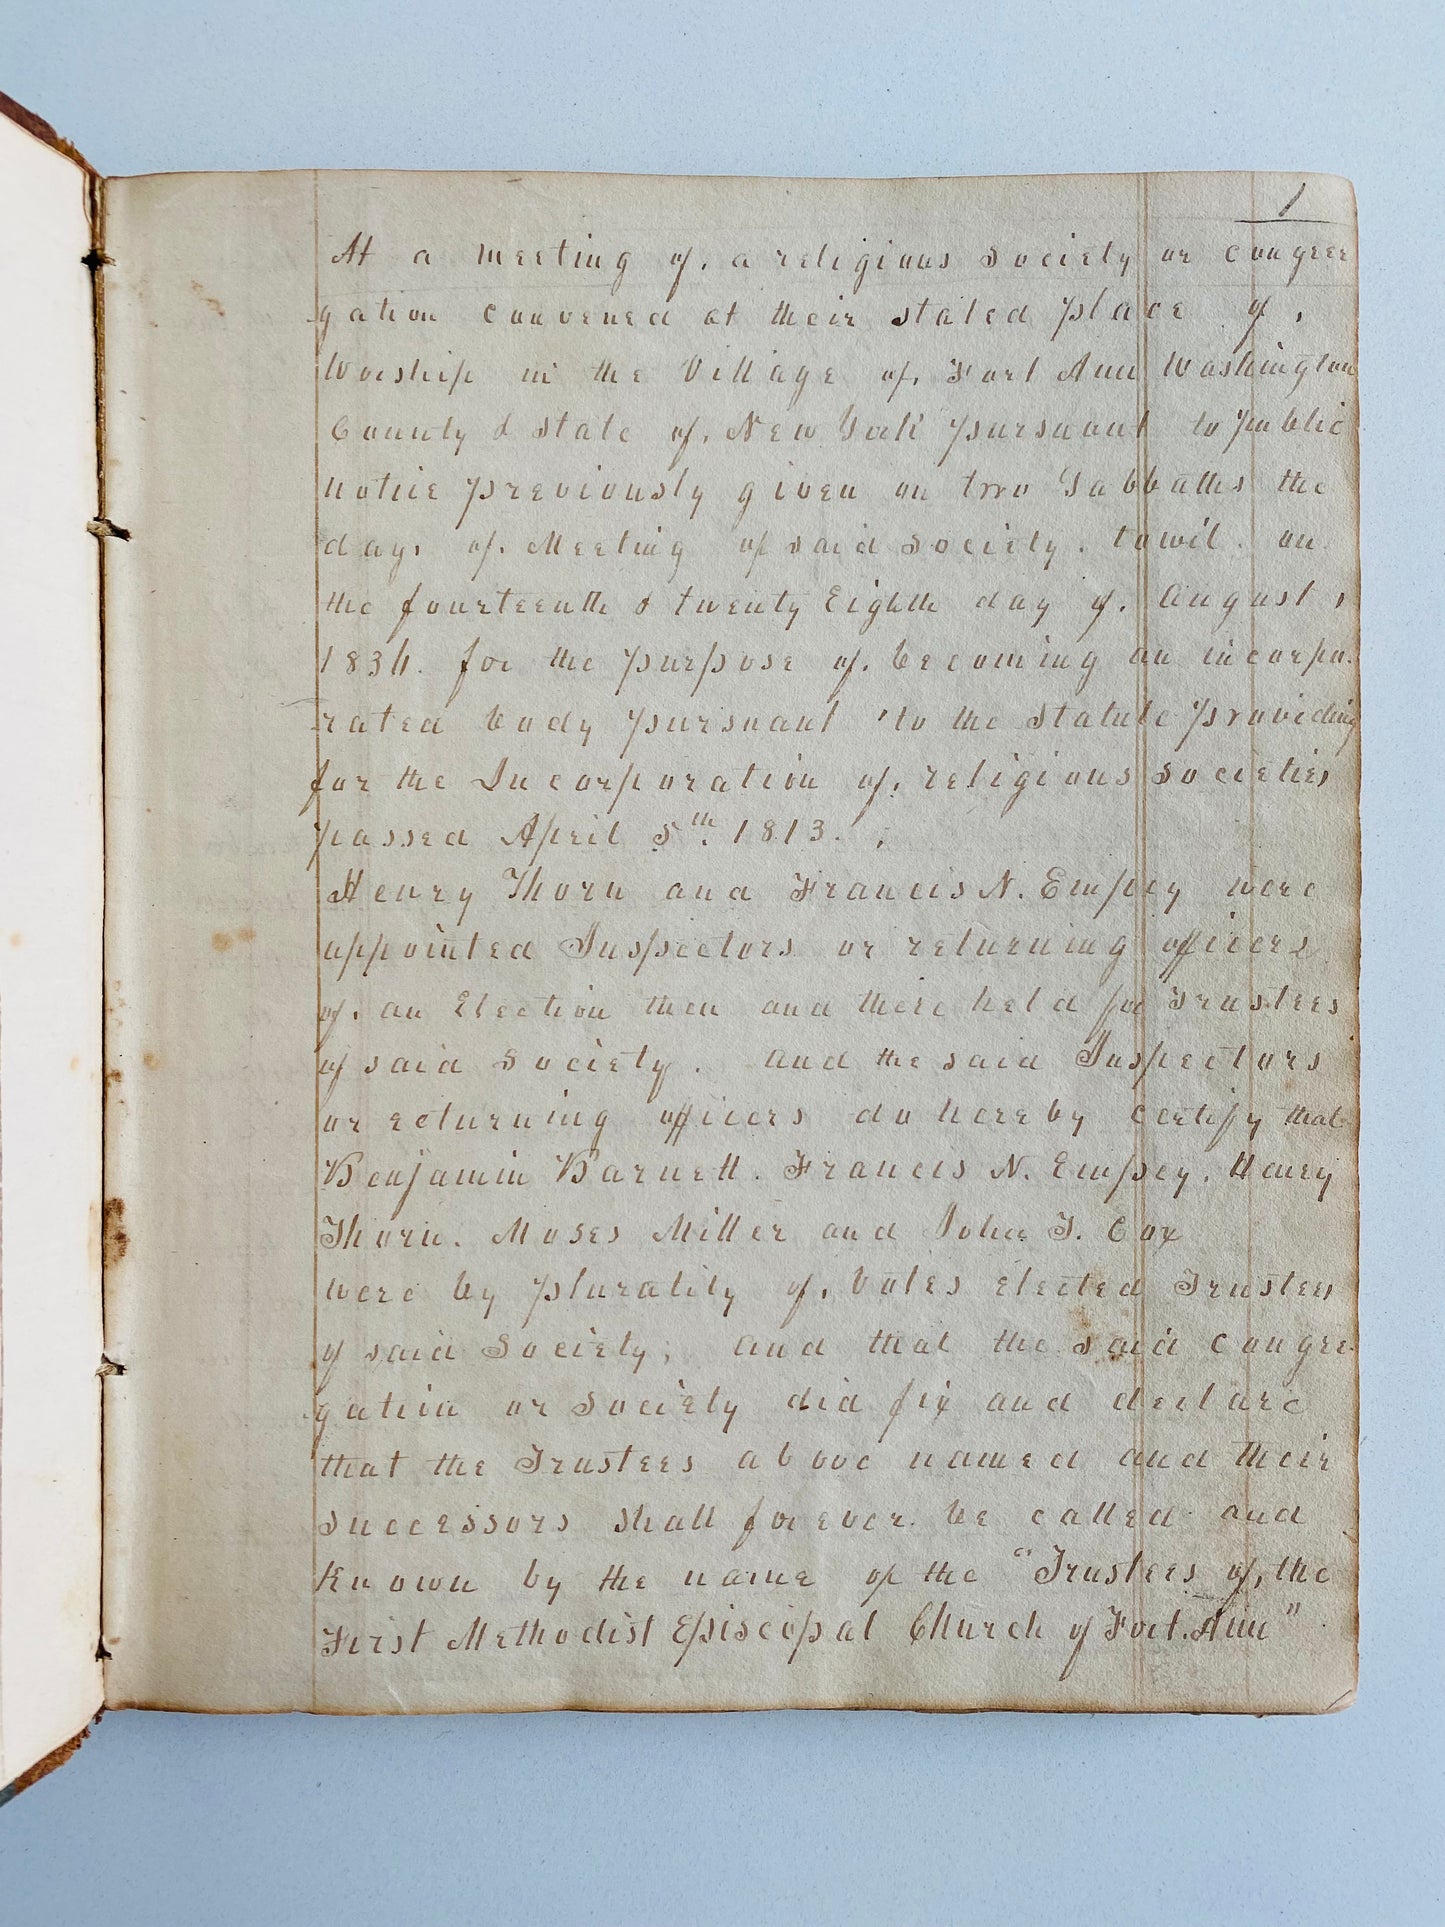 1
At a meeting of. a religious Society or Congree
gation Convened at their stated place of,
Worship in the Village of. Fort Ann Washington
County & State of. New York pursuant to public
notice previously given on two Sabbaths the
days of. Meeting of said Society. towit. on
the fourteenth & twenty Eighth day of. August,
1834. for the purpose of. becoming an incorpo.
rated body pursuant to the Statute providing
for the Incorporation of. religious Societies
passed April 5th. 1813.
Henry Thorn and Francis N. Empey were
appointed Inspectors or returning officers
of. an Election then and there held for Trustees
of said Society. And the said Inspectors
or returning officers do hereby certify that
Benjamin Barnett. Francis N. Empey. Henry
Thorn. Moses Miller and John T. Cox
were by plurality of. Votes Elected Trustees
of said Society; And that the said Congre
gation or Society did fix and declare
that the Trustees above named and their
successors shall forever be called and
Known by the name of the "Trustees of, the
First Methodist Episcopal Church of Fort. Ann"